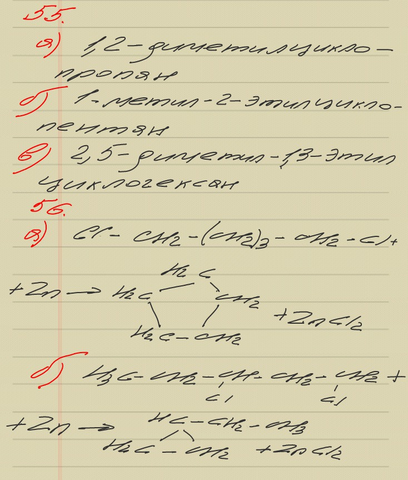 55.
а) 1,2-диметилцикло-
пропан
б) 1-метил-2-этилцикло-
пентан
в) 2,5-диметил-1,3-этил
циклогексан
56.
а) Cl-CH2-(CH2)3-CH2-Cl+
H2C
+Zn→ H2C CH2
+ZnCl2
H2C-CH2
б) H3C-CH2-CH-CH2-CH2+
Cl Cl
+Zn→ HC-CH2-CH3
H2C-CH2 +ZnCl2